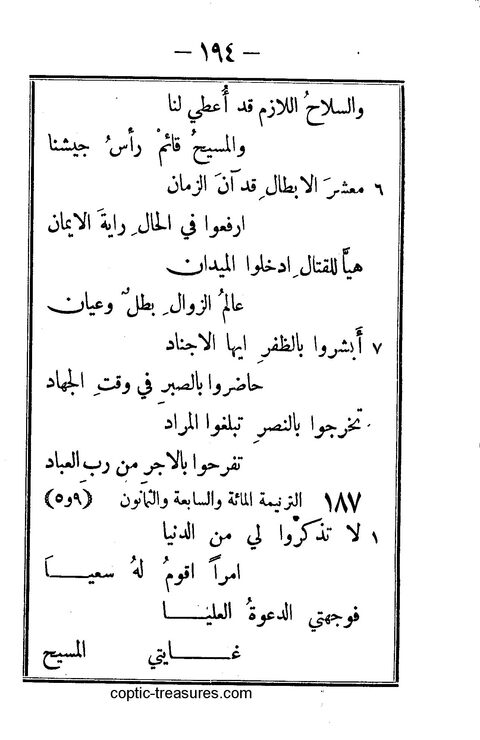 – ١٩٤ –
والسلاحُ اللازم قد أُعطي لنا
والمسيحُ قائمْ رأسُ جيشنا
٦ معشرَ الابطالِ قد آنَ الزمان
ارفعوا في الحالِ رايةَ الايمان
هيَّا للقتالِ ادخلوا الميدان
عالمُ الزوالِ بطلٌ وعيان
٧ أَبشروا بالظفرِ ايها الاجناد
حاضروا بالصبرِ في وقتِ الجهاد
تخرجوا بالنصرِ تبلغوا المراد
تفرحوا بالاجرِ من ربِ العباد
١٨٧ الترنيمة المائة والسابعة والثمانون (٩و٥)
١ لا تذكرُوا لي من الدنيا
امراً اقومُ لهُ سعيـــاَ
فوجهتي الدعوةُ العليـــا
غـــايتي المسيح
coptic-treasures.com